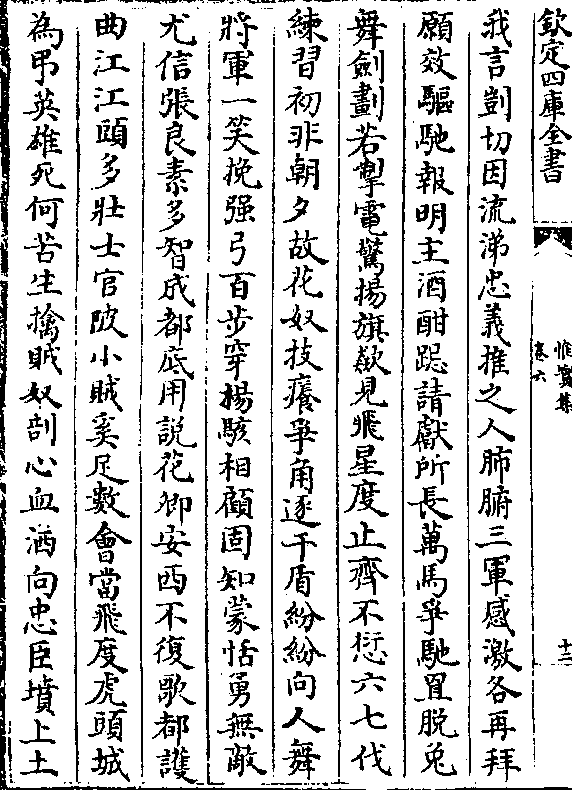 欽定四庫全書
惟實集
卷六
十三
我言剴切因流涕忠義推之人肺腑三軍感激各再拜
願效驅馳報明主酒酣跽請獻所長萬馬爭馳罝脫兔
舞劍劃若掣電驚揚旗歘見飛星度止齊不愆六七伐
練習初非朝夕故花奴技癢爭角逐干盾紛紛向人舞
將軍一笑挽强弓百步穿楊駭相顧固知蒙恬勇無敵
尤信張良素多智成都底用說花卿安西不復歌都護
曲江江頭多壯士官陂小賊奚足數會當飛度虎頭城
為弔英雄死何苦生擒賊奴剖心血洒向忠臣墳上土